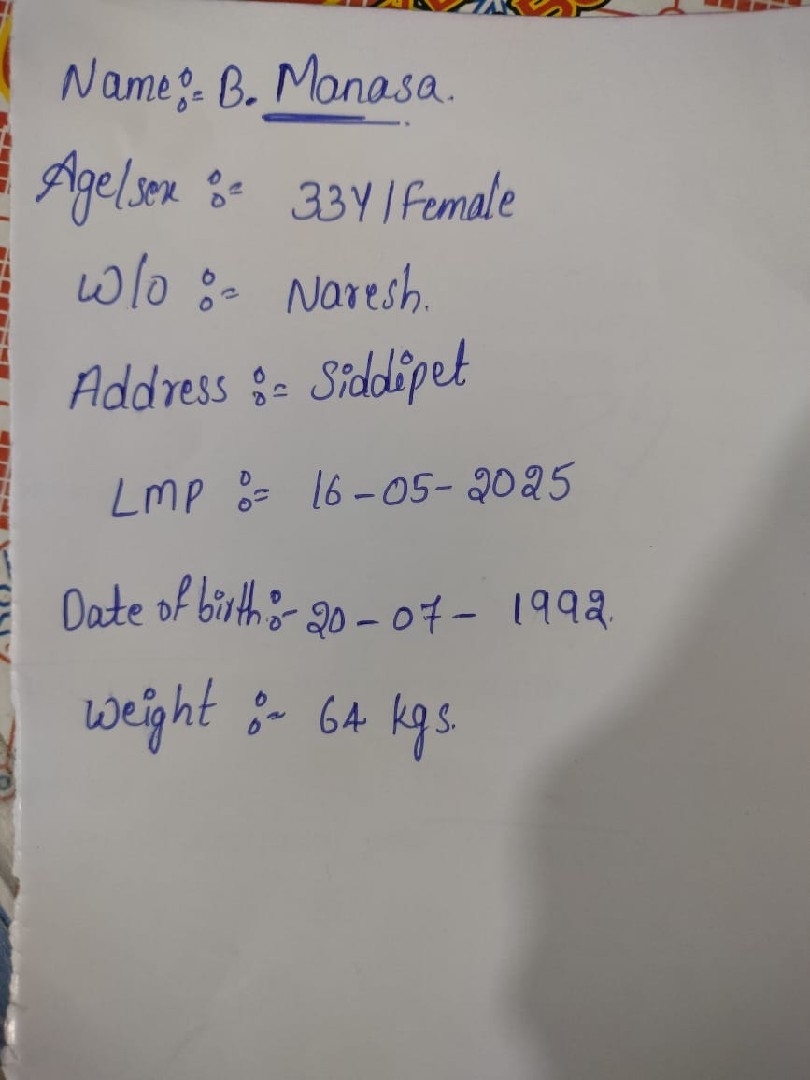 Name:- B. Manasa.
Age/sex :- 33Y/Female
W/o :- Naresh.
Address :- Siddipet
LMP :- 16-05-2025
Date of birth:- 20-07-1992.
Weight :- 64 kgs.